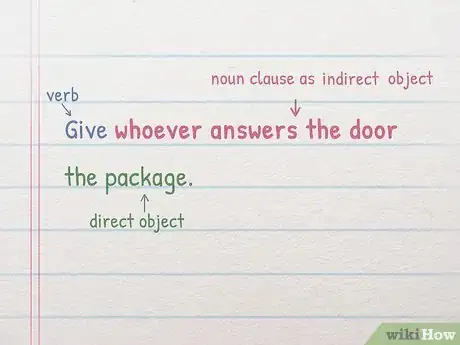 noun clause as indirect object
verb
Give whoever answers the door
the package.
direct object
wikiHow